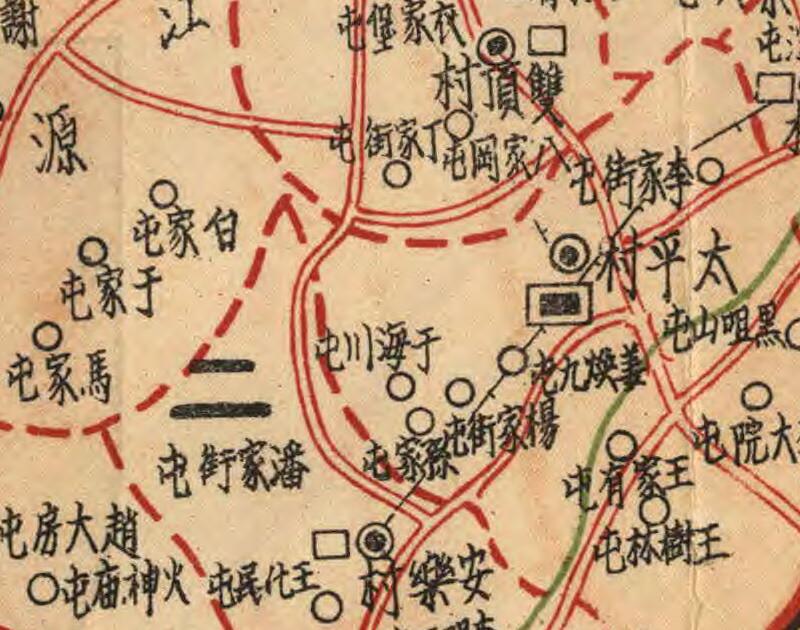 謝
江
衣家堡屯
雙頂村
丁家街屯
八家岡屯
李家街屯
源
白家屯
太平村
于家屯
黑咀山屯
于海川屯
馬家屯
姜煥九屯
二
楊家街屯
孫家屯
大院屯
潘家街屯
王家有屯
趙大房屯
王樹林屯
火神庙屯
王化民屯
安樂村